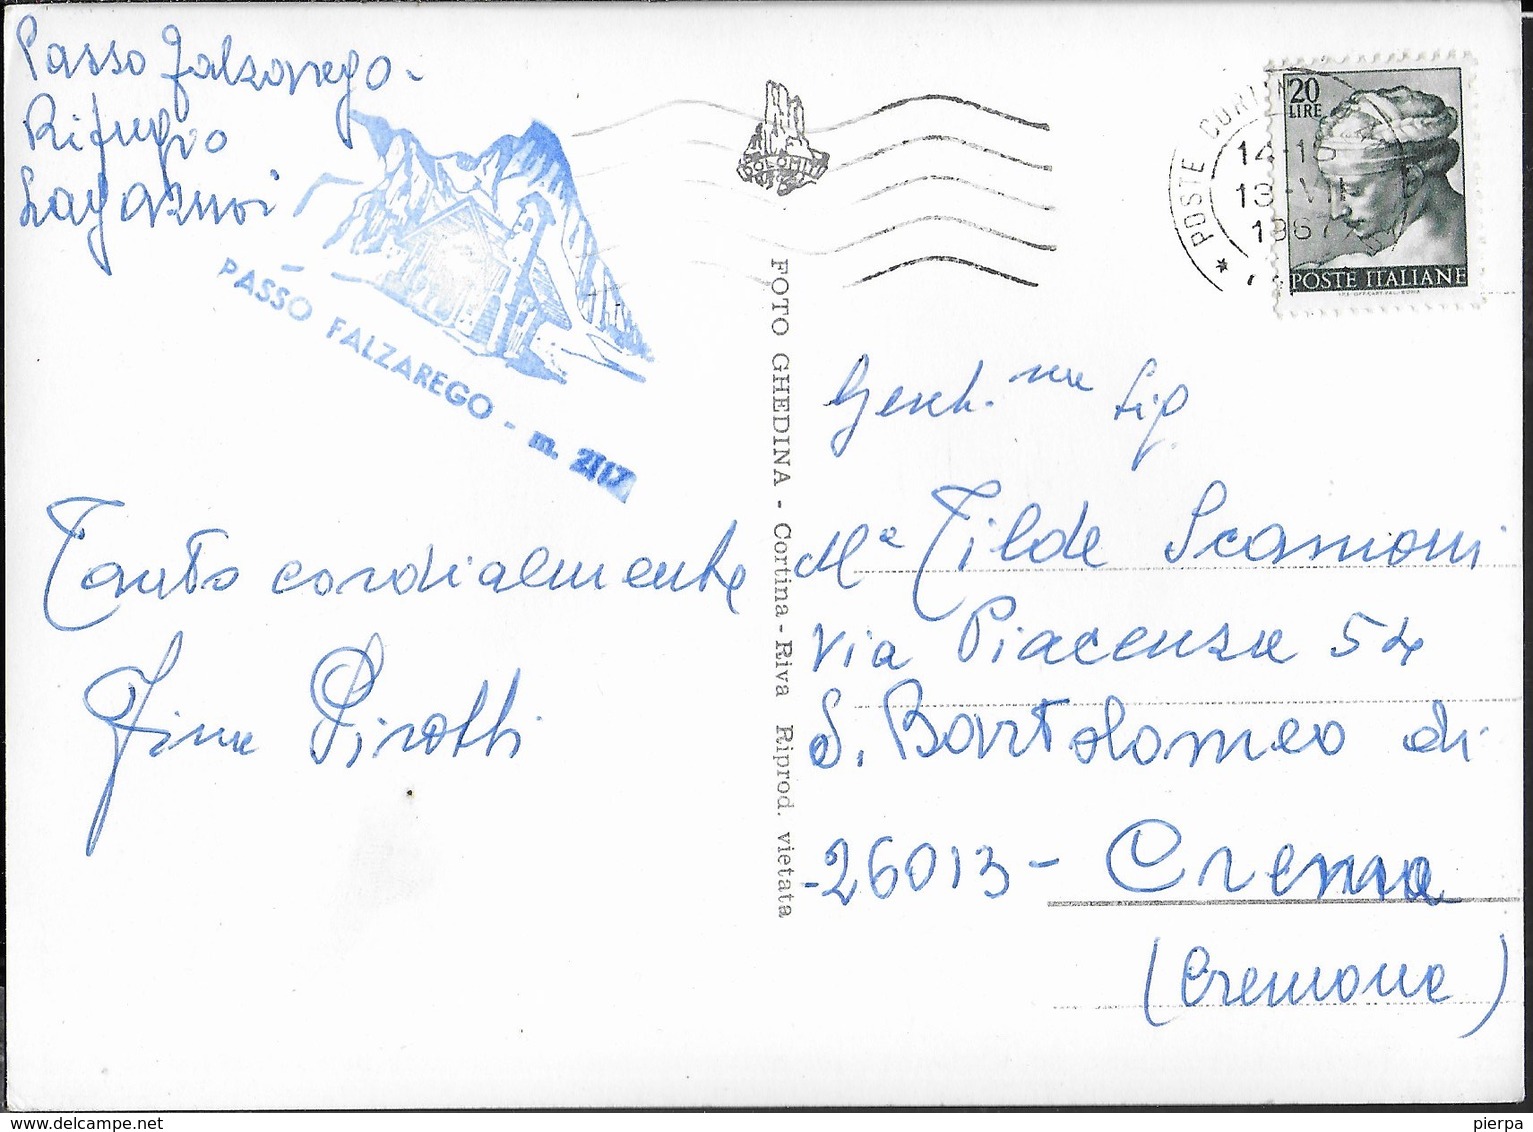 Passo Falzarego -
Rifugio
Lagazuoi
PASSO FALZAREGO - m. 2117
Tanto cordialmente
Pirotti
FOTO GHEDINA - Cortina - Riva Riprod. vietata
DOLOMITI
POSTE CORTIN
14-15
13-VII
1967
20
LIRE
POSTE ITALIANE
Gent.ma Sig.
Mª Tilde Scamoni
Via Piacenza 54
S. Bartolomeo di
-26013- Crema
(Cremona)
pierpa
www.delcampe.net